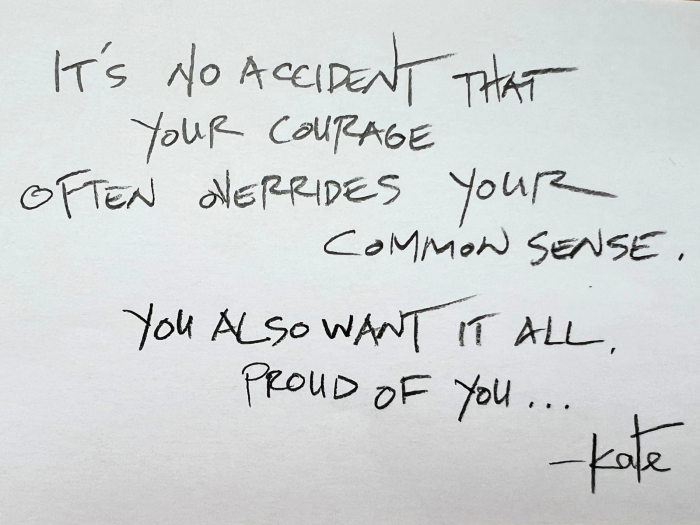 IT'S NO ACCIDENT THAT
YOUR COURAGE
OFTEN OVERRIDES YOUR
COMMON SENSE.
YOU ALSO WANT IT ALL.
PROUD OF YOU...
-kate